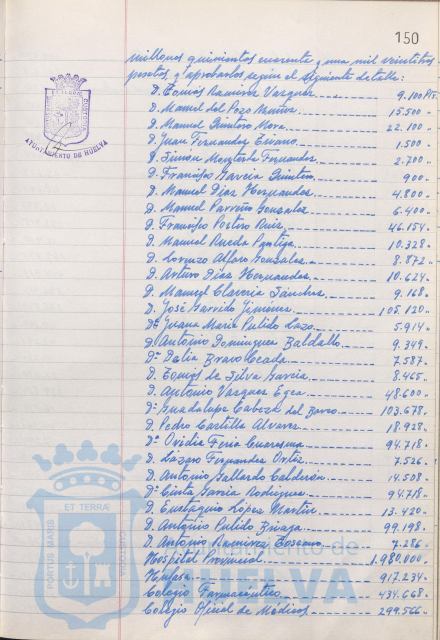 150
millones quinientos cuarenta y una mil veintitres
pesetas, y aprobarlos según el siguiente detalle:
D. Tomás Ramírez Vazquez 9.100 Pts.
D. Manuel del Pozo Muñoz 15.500 "
D. Manuel Quintero Mora 22.100 "
D. Juan Fernandez 1.500 "
D. Simón Fernandez 2.700 "
D. Francisco García Quintero 900 "
D. Manuel Diaz Hernandez 4.800 "
D. Manuel Parreño Gonzalez 6.400 "
D. Francisco Ruiz 46.154 "
D. Manuel Rueda Pantoja 10.328 "
D. Lorenzo Alfaro Gonzalez 8.872 "
D. Arturo Diaz Hernandez 10.624 "
D. Manuel Claveria Sánchez 9.168 "
D. José Garrido Jimenez 105.120 "
Dª Juana María Pulido Lazo 5.914 "
D. Antonio Dominguez Baldallo 9.349 "
Dª Delia Bravo 7.587 "
D. Tomás de Silva García 8.465 "
D. Antonio Vazquez Egea 48.600 "
Dª Guadalupe Cabeza del Barco 103.678 "
D. Pedro Castilla Alvarez 18.928 "
Dª Ovidia Feria 94.718 "
D. Lázaro Fernandez Ortiz 7.526 "
D. Antonio Gallardo Calderón 14.508 "
Dª Cinta García Rodriguez 94.718 "
D. Eustaquio López Martín 13.420 "
D. Antonio Pulido 99.198 "
D. Antonio Ramirez Toscano 7.286 "
Hospital Provincial 1.980.000 "
917.234 "
Colegio Farmacéutico 434.668 "
Colegio Oficial de Médicos 299.566 "
AYUNTAMIENTO DE HUELVA
PORTUS MARIS ET TERRAE CUSTODIA
Ayuntamiento de
HUELVA